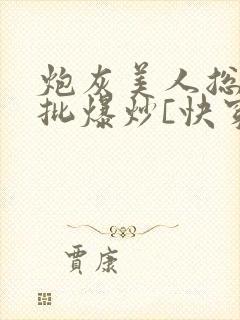 炮灰美人总
批爆炒[快穿
賈康